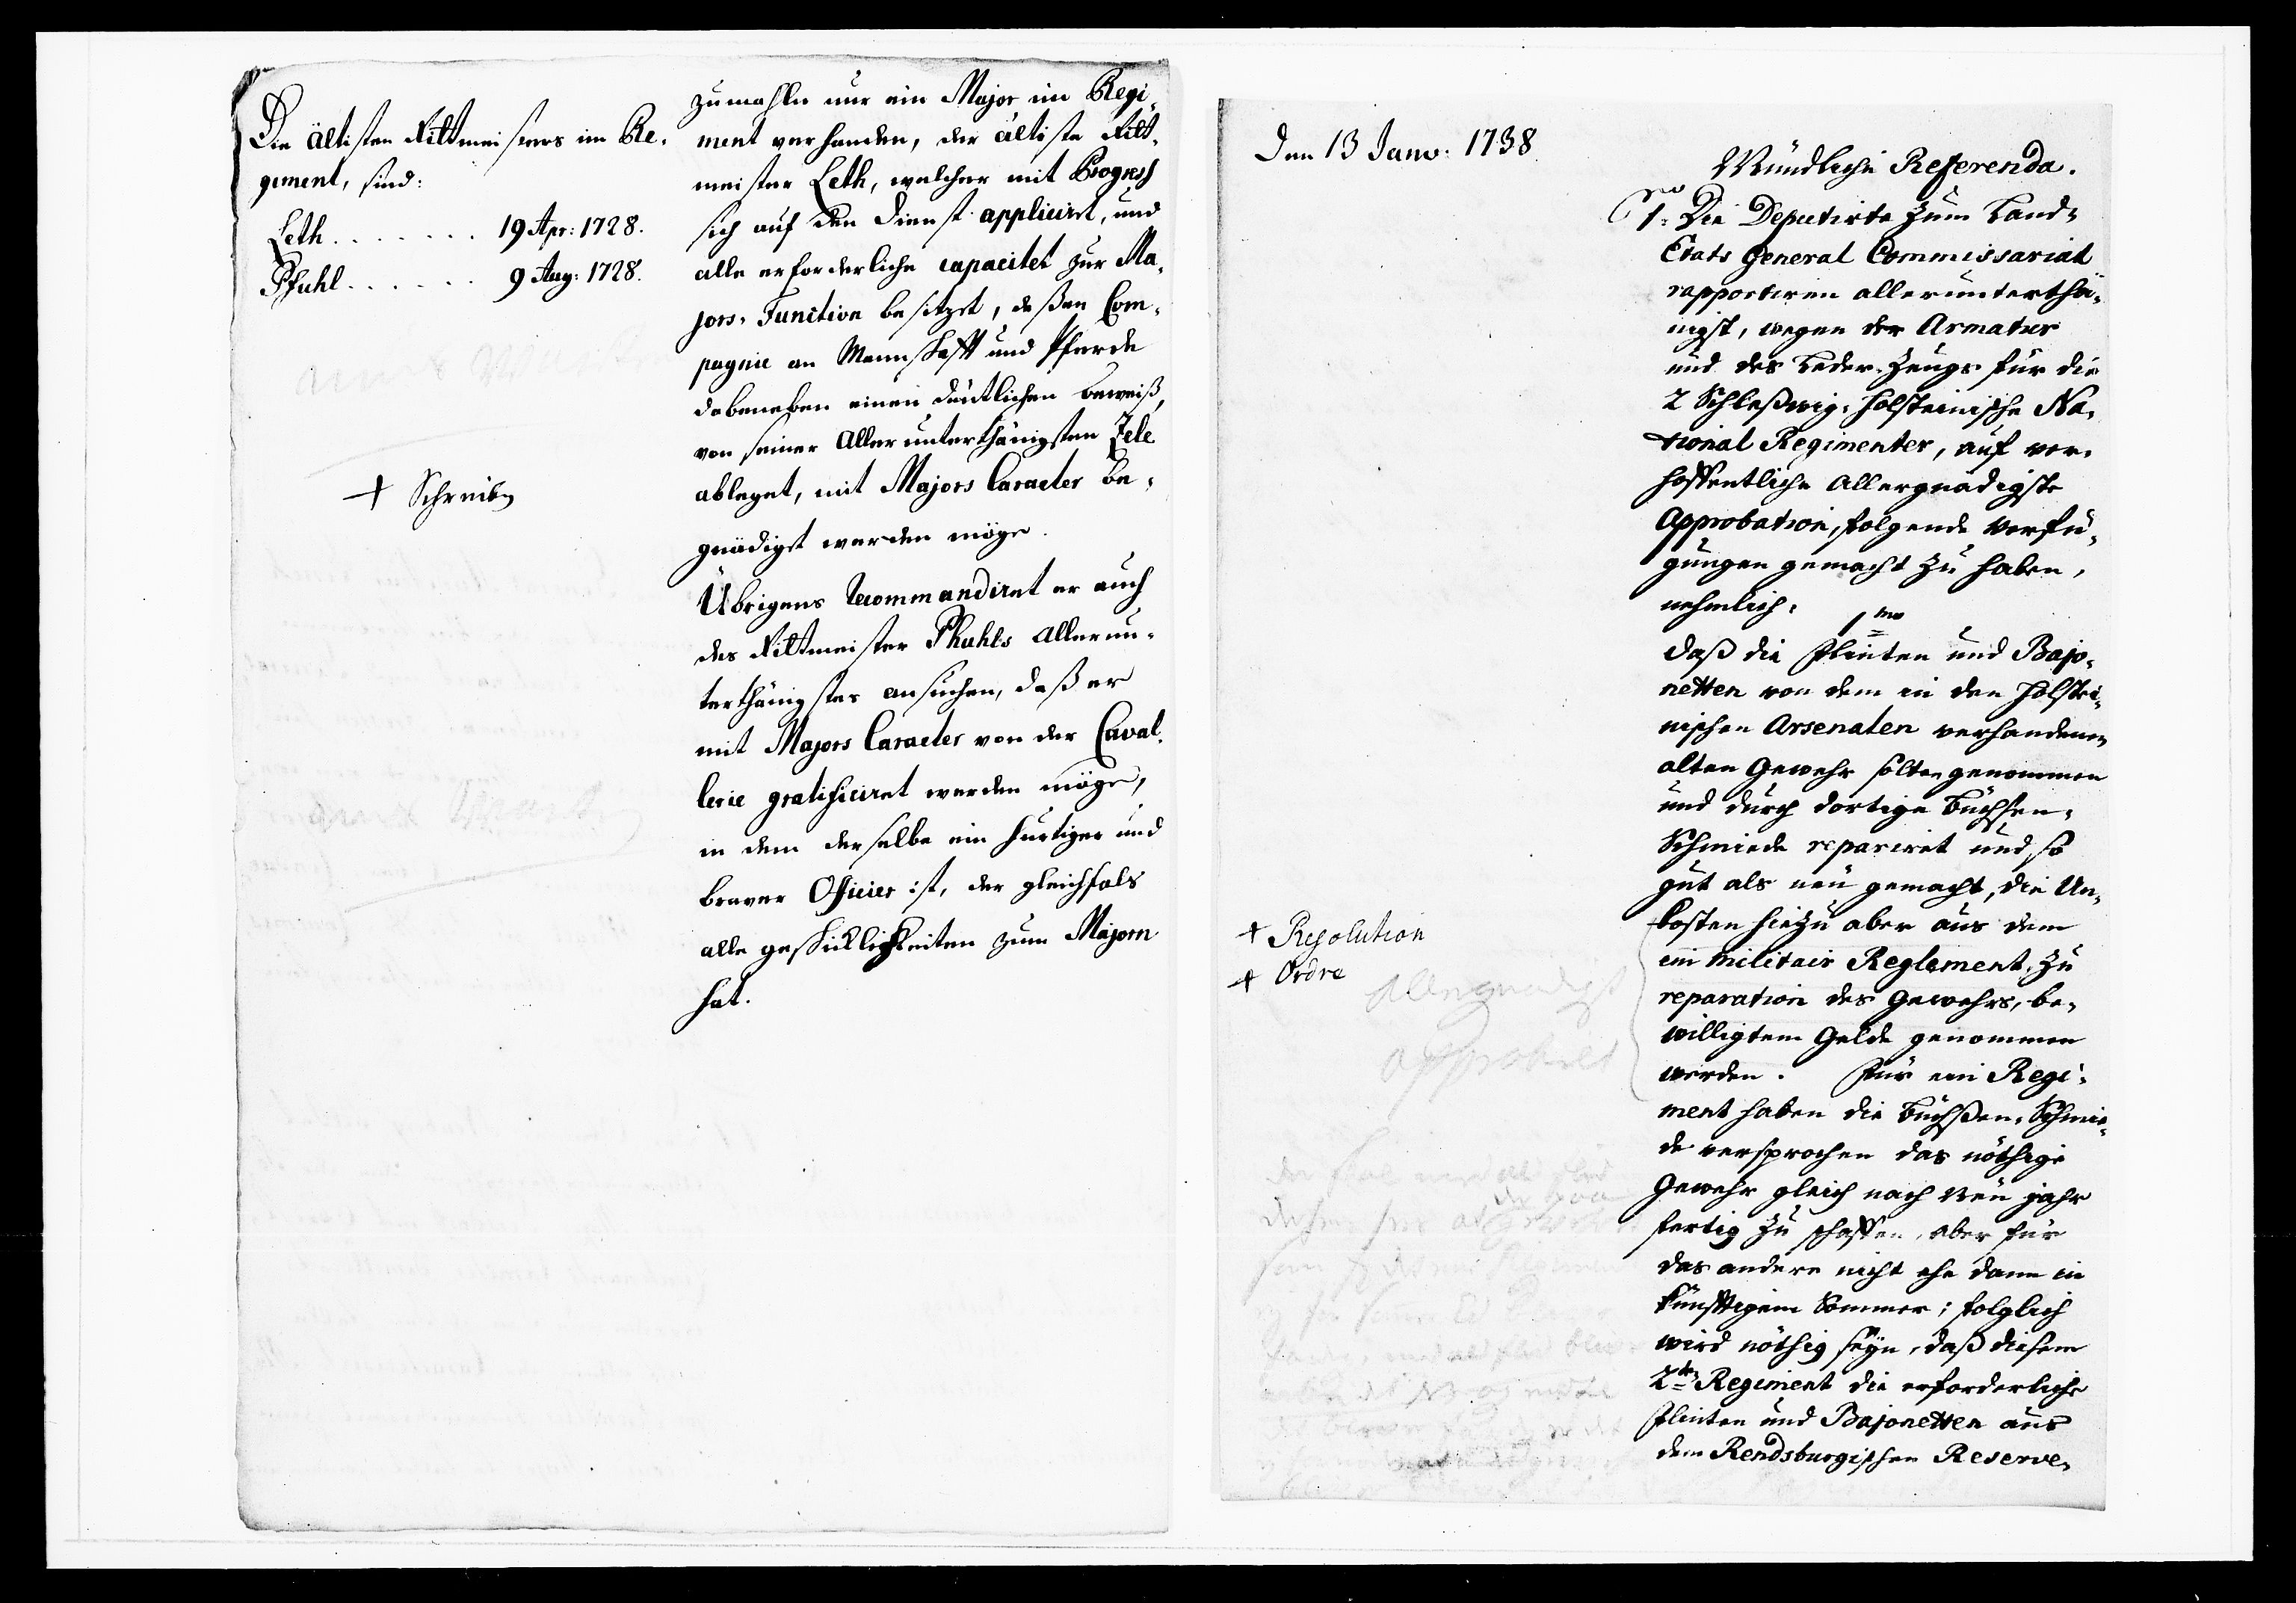 Die Ältisten Rittmeisters im Re-
giment, sind:
Leth . . . . . . . 19 Apr: 1728.
Pfuhl . . . . . . 9 Aug: 1728.
+ Schreiben
zumahln nur ein Major im Regi-
ment verhanden, der ältiste Ritt-
meister Leth, welcher mit Progress
sich auf den Dienst appliciret, und
alle erforderliche capacitet zur Ma-
jors-Function besitzet, deßen Com-
pagnie an Mannschafft und Pferde
dabeneben einen deutlichen beweiß,
von seiner Allerunterthänigsten Zele
ableget, mit Majors Caracter be-
gnädiget werden möge.
Übrigens recommandiret er auch
des Rittmeister Phuhls Allerun-
terthänigstes ansuchen, daß er
mit Majors Caracter von der Caval-
lerie gratificiret werden möge,
in dem derselbe ein hurtiger und
braver Officier ist, der gleichfals
alle geschicklichkeiten zum Majorn
hat.
Den 13 Janv: 1738
Mündliche Referenda.
1. Die Deputirte zum Land-
Etats General Commissariat
rapportiren allerunterthä-
nigst, wegen der Armatur
und des Leder-Zeugs für die
2 Schleßwig-Holsteinische Na-
tional Regimenter, auf ver-
hoffentliche Allergnädigste
Approbation, folgende Verfü-
gungen gemacht zu haben,
nehmlich:
1mo
daß die Flinten und Bajo-
netten von dem in den Holstei-
nischen Arsenalen verhandenen
alten Gewehr solten genommen
und durch dortige Büchsen-
Schmiede repariret und so
gut als neu gemacht, die Un-
kosten hiezu aber aus dem
im Militair Reglement, zu
reparation des Gewehrs, be-
willigtem Gelde genommen
werden. Für ein Regi-
ment haben die Büchßen-Schmie-
de versprochen das nöthige
Gewehr gleich nach Neu jahr
fertig zu schaffen, aber für
das andere nicht ehe dann in
künfftigem Sommer; folglich
wird nöthig seyn, daß diesem
2ten Regiment die erforderliche
Flinten und Bajonetten aus
dem Rendsburgischen Reserve-
+ Resolution
+ Ordre
Allergnädigst
approbiret